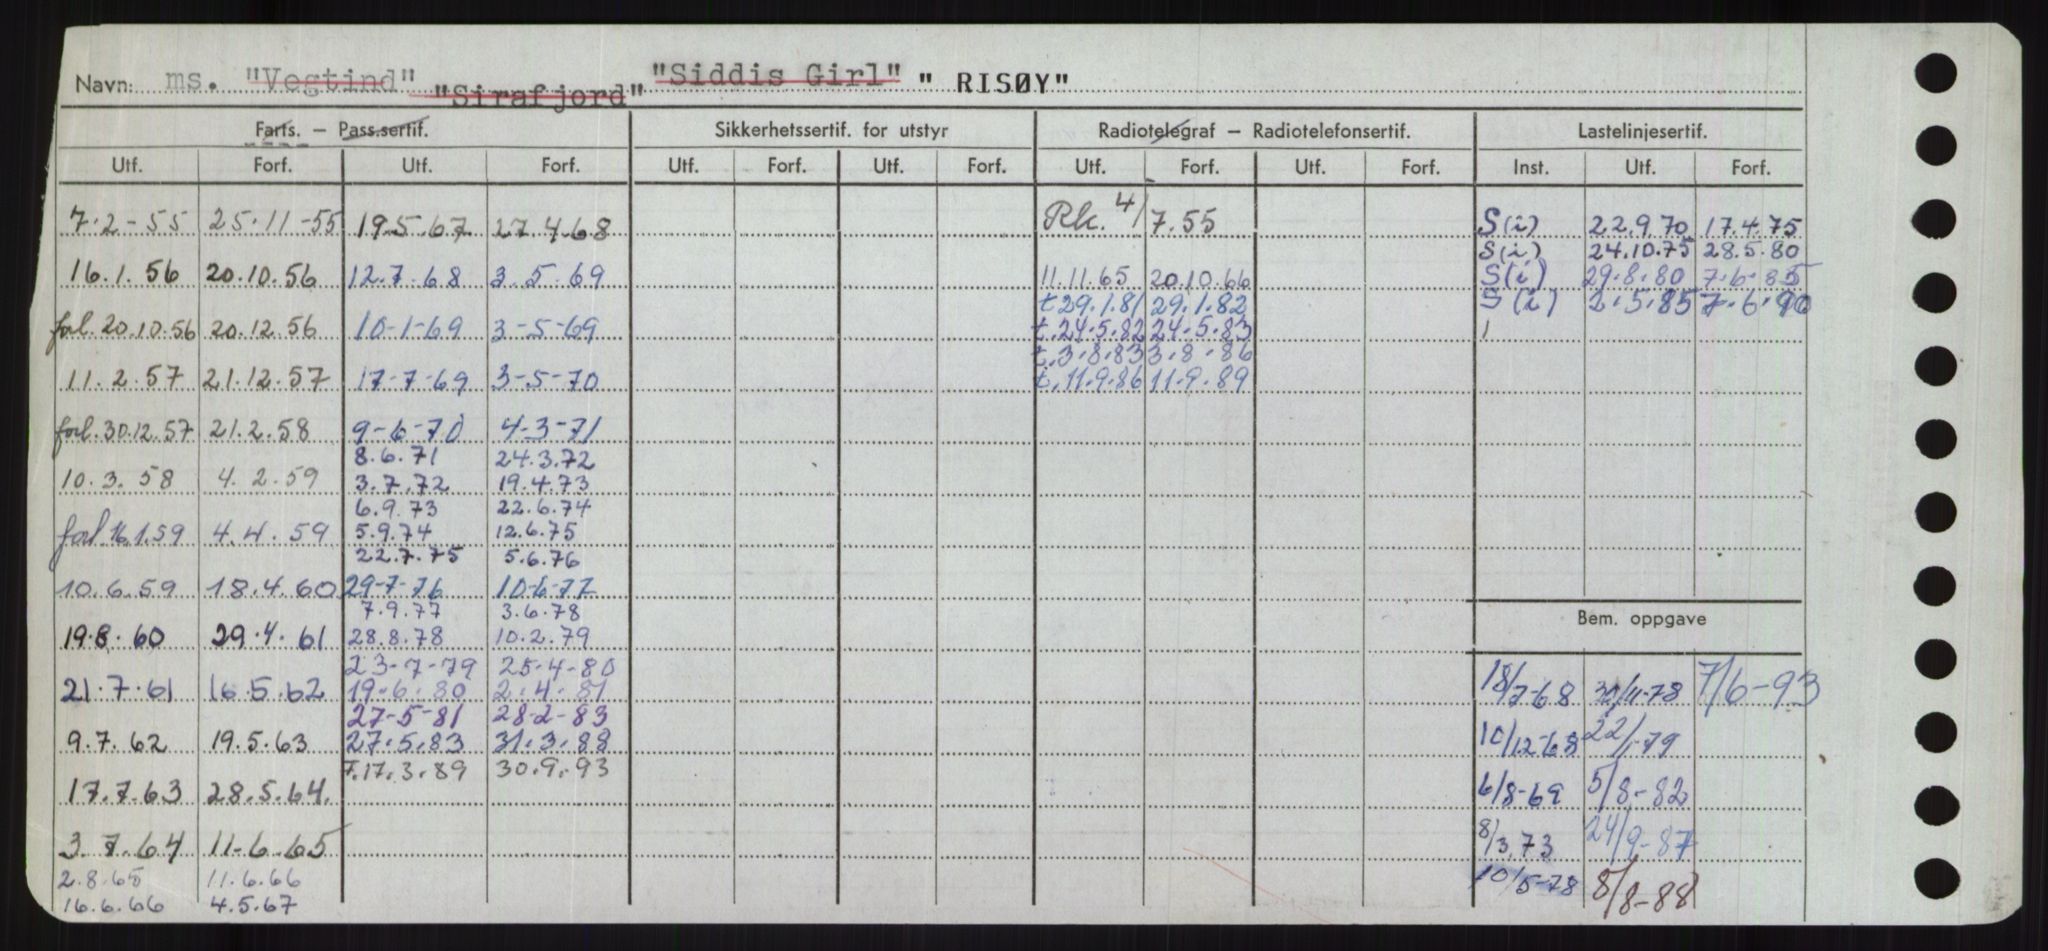 Navn: ms. "Vegtind" "Sirafjord" "Siddis Girl" " RISØY"
Farts. – Pass.sertif. Sikkerhetssertif. for utstyr Radiotelegraf – Radiotelefonsertif. Lastelinjesertif.
Utf. Forf. Utf. Forf. Utf. Forf. Utf. Forf. Utf. Forf. Utf. Forf. Inst. Utf. Forf.
7.2-55 25.11-55 19.5.67 27.4.68 Rk. 4/7.55 S(i) 22.9.70 17.4.75
S(i) 24.10.75 28.5.80
16.1.56 20.10.56 12.7.68 3.5.69 11.11.65 20.10.66 S(i) 29.8.80 7.6.85
t 29.1.81 29.1.82 S(i) 2.5.85 7.6.90
forl. 20.10.56 20.12.56 10-1-69 3-5-69 t.24.5.82 24.5.83
t.3.8.83 3.8.86
11.2.57 21.12.57 17-7-69 3-5-70 t.11.9.86 11.9.89
forl. 30.12.57 21.2.58 9-6-70 4-3-71
8.6.71 24.3.72
10.3.58 4.2.59 3.7.72 19.4.73
6.9.73 22.6.74
forl 16.1.59 4.4.59 5.9.74 12.6.75
22.7.75 5.6.76
10.6.59 18.4.60 29-7-76 10-6-77
7.9.77 3.6.78
19.8.60 29.4.61 28.8.78 10.2.79 Bem. oppgave
23-7-79 25-4-80
21.7.61 16.5.62 19.6.80 2.4.81 18/7-68 30/11-78 7/6-93
27-5-81 28-2-83
9.7.62 19.5.63 27.5.83 31.3.88 10/12-68 22/1-79
7.17.3.89 30.9.93
17.7.63 28.5.64. 6/8-69 5/8-82
3.7.64 11-6-65 8/3.73 24/9-87
2.8.65 11.6.66 10/5-78 8/8-88
16.6.66 4.5.67